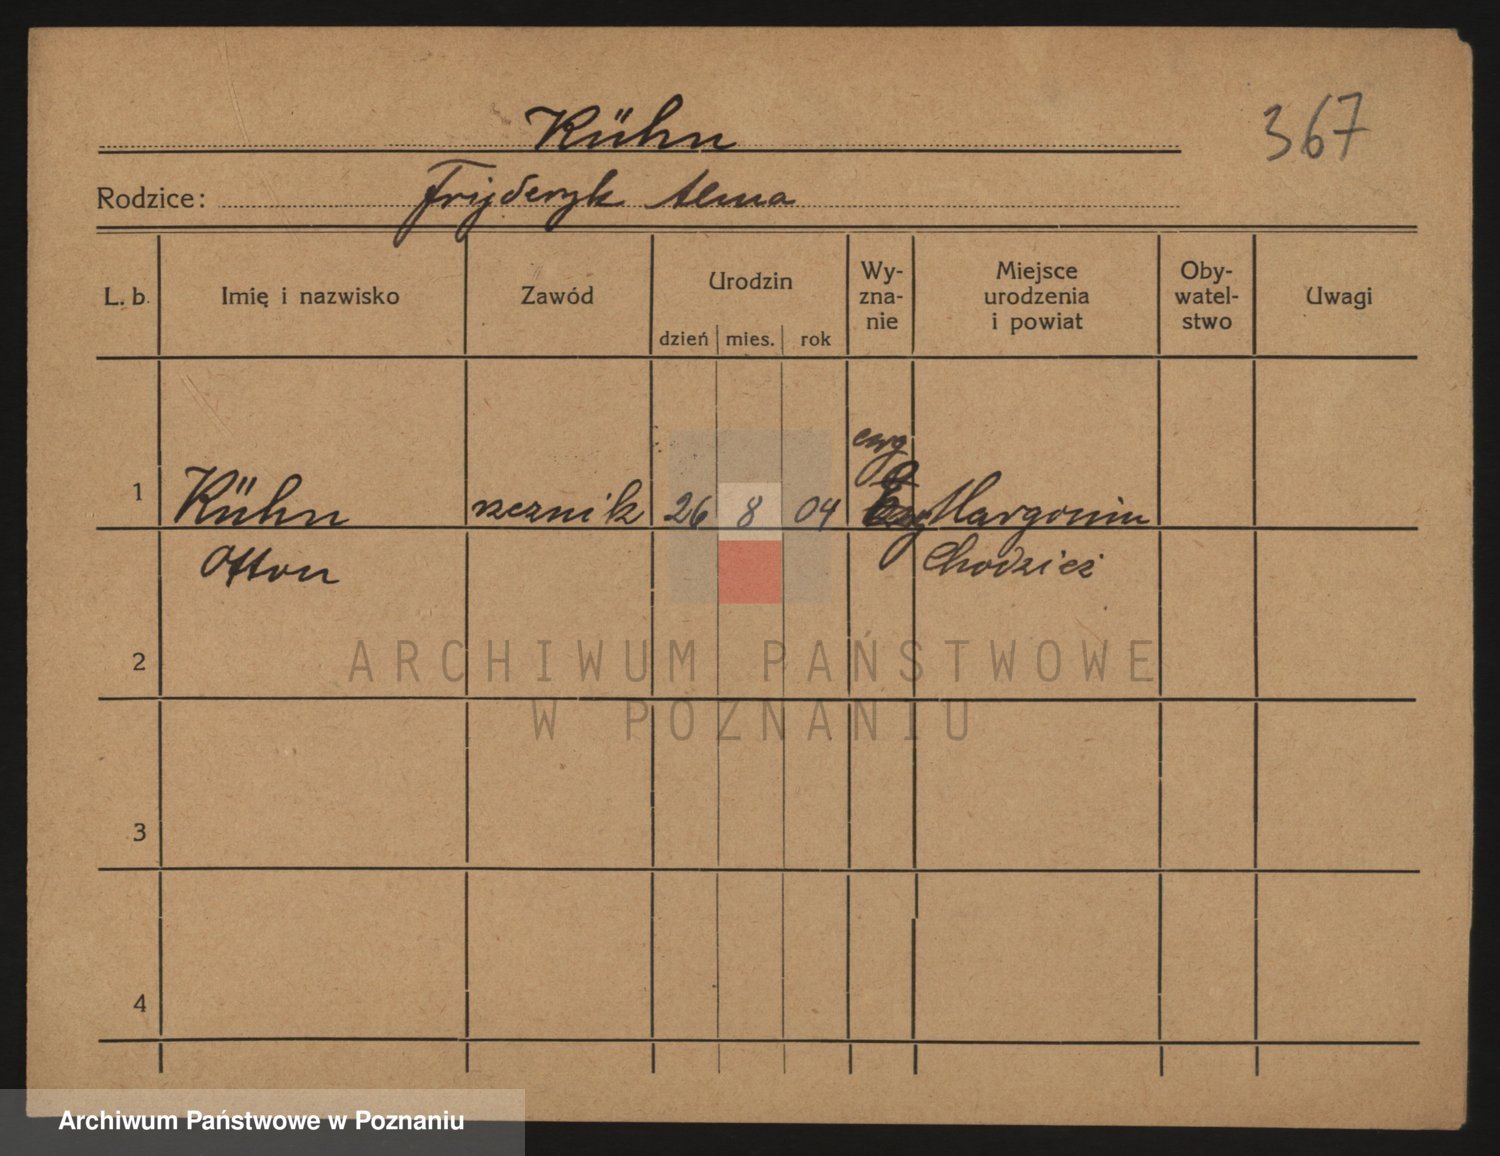 Kühn
367
Rodzice: Fryderyk Alma
L. b. Imię i nazwisko Zawód Urodzin dzień mies. rok Wy-zna-nie Miejsce urodzenia i powiat Oby-watel-stwo Uwagi
ewg
1 Kühn rzeznik 26 8 04 Margonin
Otton Chodzież
2
ARCHIWUM PAŃSTWOWE
W POZNANIU
3
4
Archiwum Państwowe w Poznaniu